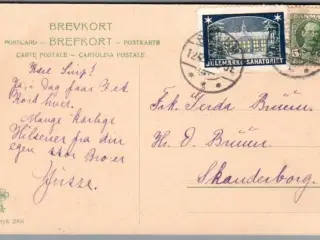 BREVKORT
POSTCARD — BREFKORT — POSTKARTE
CARTE POSTALE — CARTOLINA POSTALE
Kære
I Dag faar I et
Kort hver.
Mange kærlige
Hilsener fra din
egen stor Broer
Jusse.
JULEMÆRKE SANATORIET
DANMARK
5
Frk. Gerda Bruun.
Hr. D. Bruun.
Skanderborg.